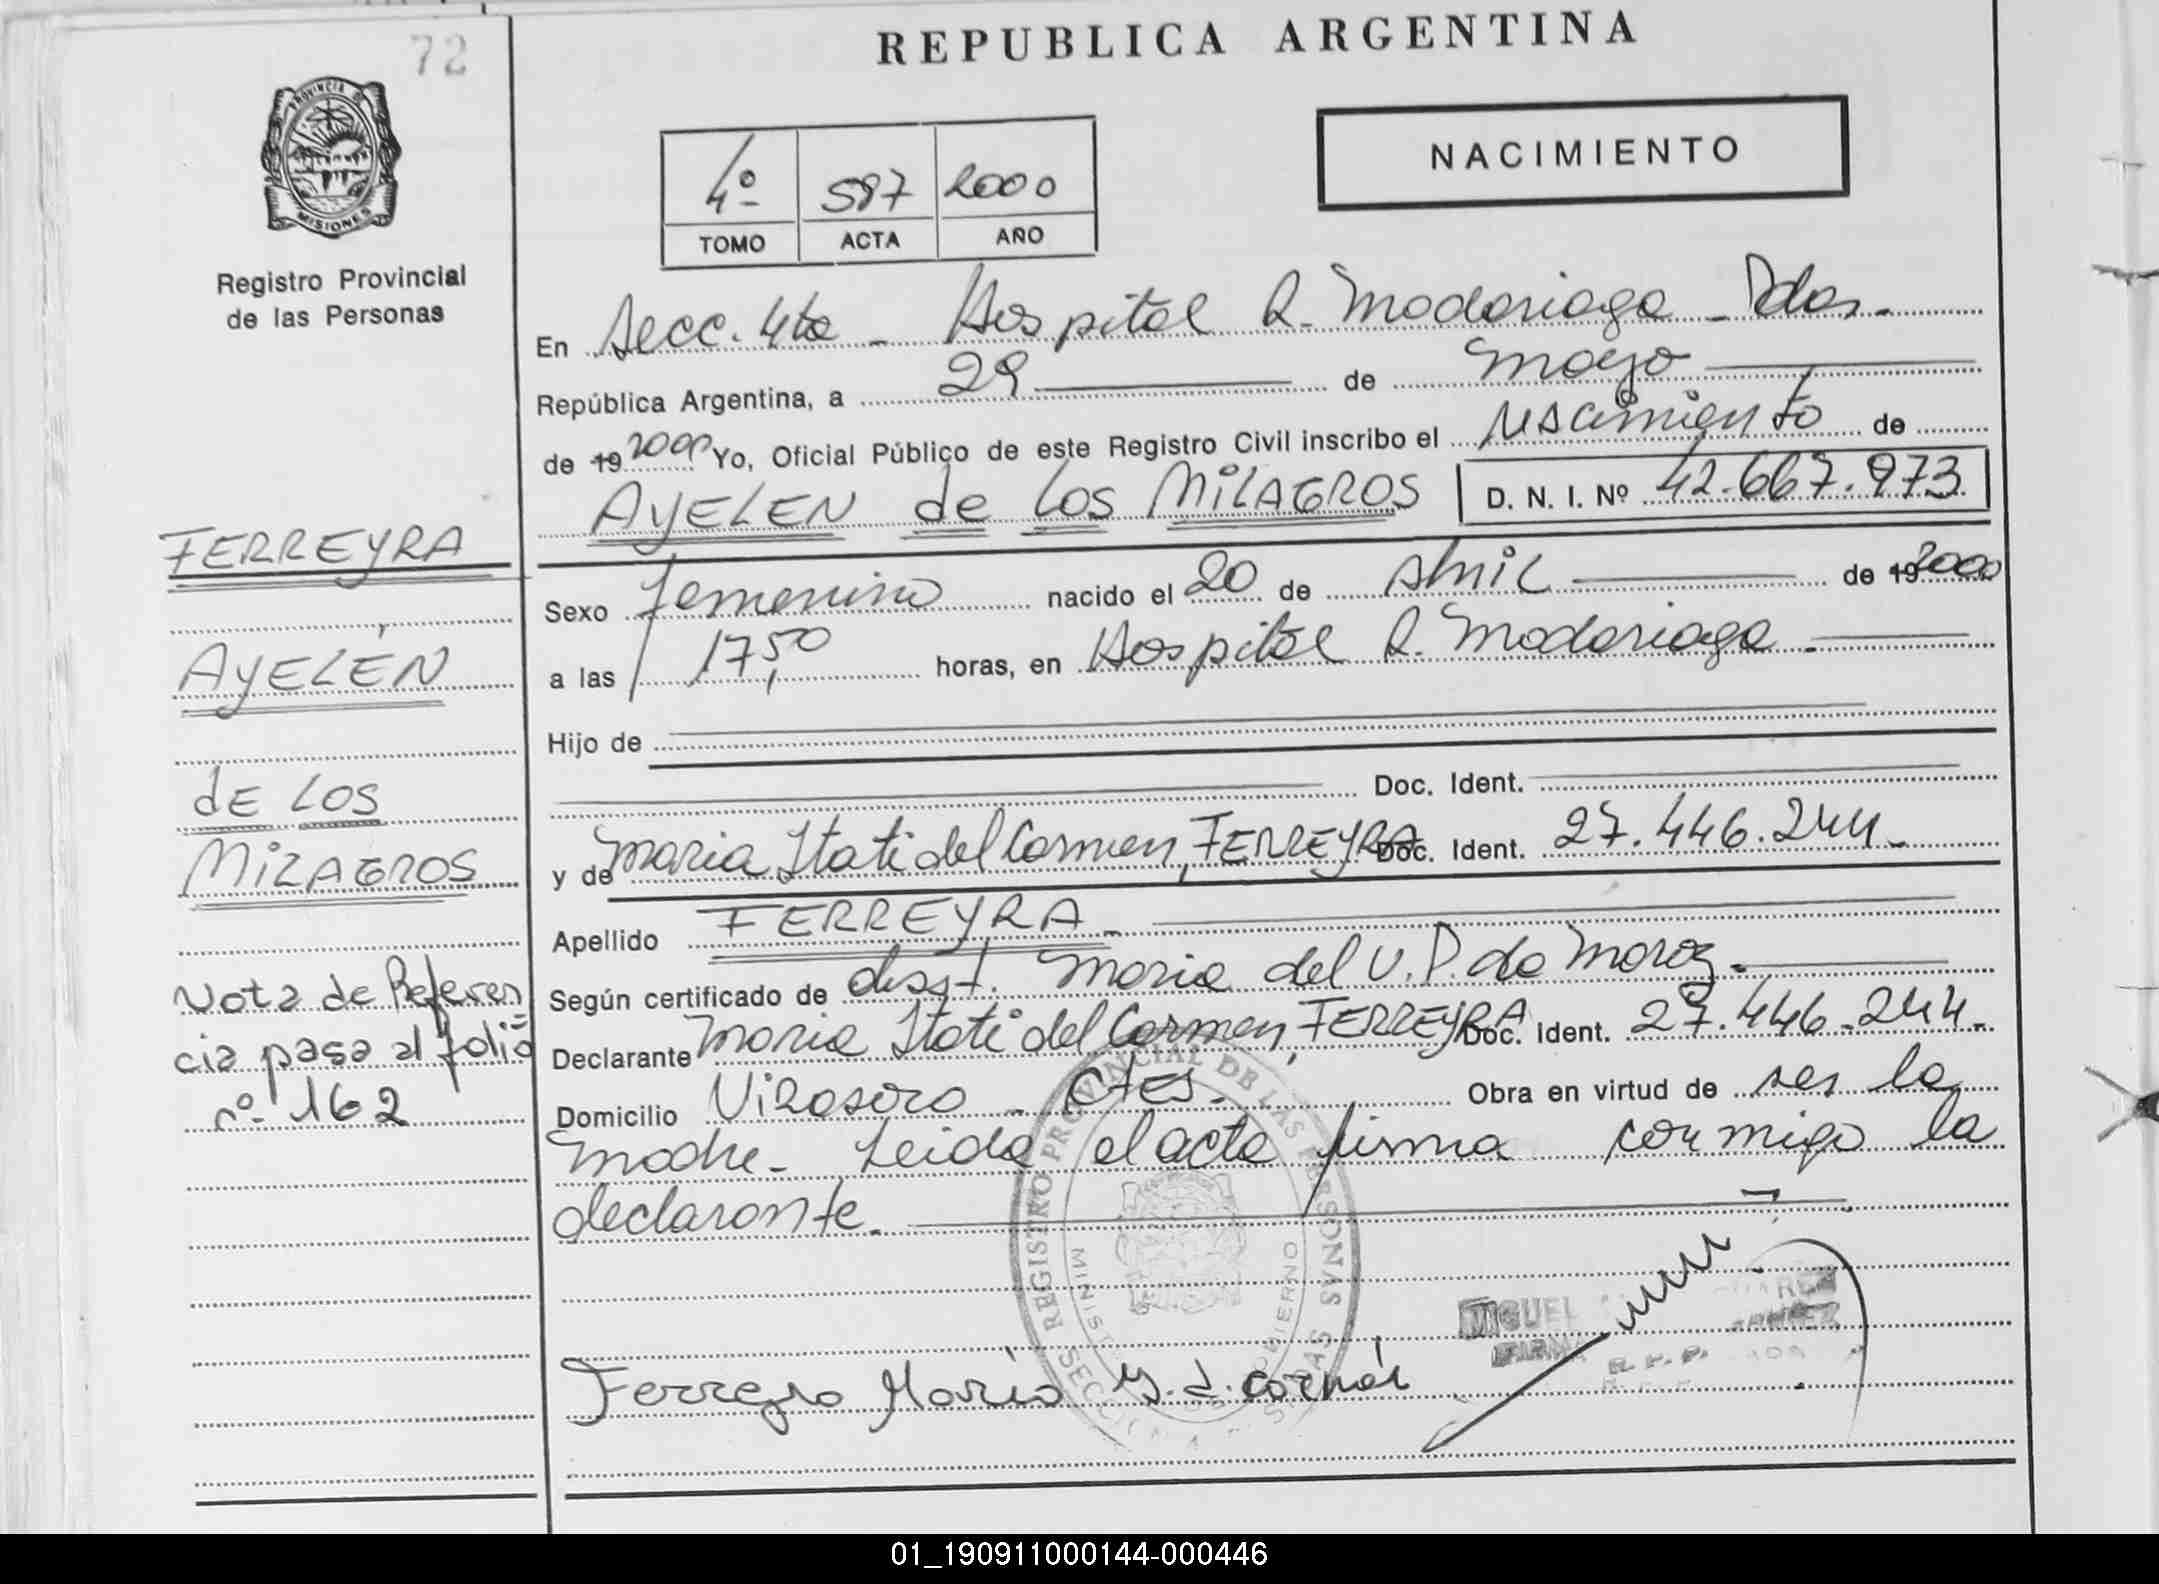 72
REPUBLICA ARGENTINA
PROVINCIA D
MISIONES
Registro Provincial
de las Personas
NACIMIENTO
4º 587 2000
TOMO ACTA AÑO
En Secc. 4ta - Hospital R. Madariaga - Pdas.
República Argentina, a 29 de mayo
de 19 2000 Yo, Oficial Público de este Registro Civil inscribo el nacimiento de
AYELEN de los MILAGROS D. N. I. Nº 42.667.973
FERREYRA
Sexo femenino nacido el 20 de Abril de 19 2000
a las 17,50 horas, en Hospital R. Madariaga.
AYELÉN
Hijo de
Doc. Ident.
de LOS
y de Maria Itati del Carmen, FERREYRA Doc. Ident. 27.446.244.
MILAGROS
Apellido FERREYRA.
Según certificado de obst. Maria del V. P. de
Nota de Referen
Declarante Maria Itati del Carmen, FERREYRA Doc. Ident. 27.446.244.
cia pasa al folio
Domicilio Virasoro - Ctes. Obra en virtud de ser la
nº 162
madre. Leida el acta firma conmigo la
declarante.
REGISTRO PROVINCIAL DE LAS PERSONAS
MIGUEL
Ferreyra Maria I. d. Carmen
01_190911000144-000446